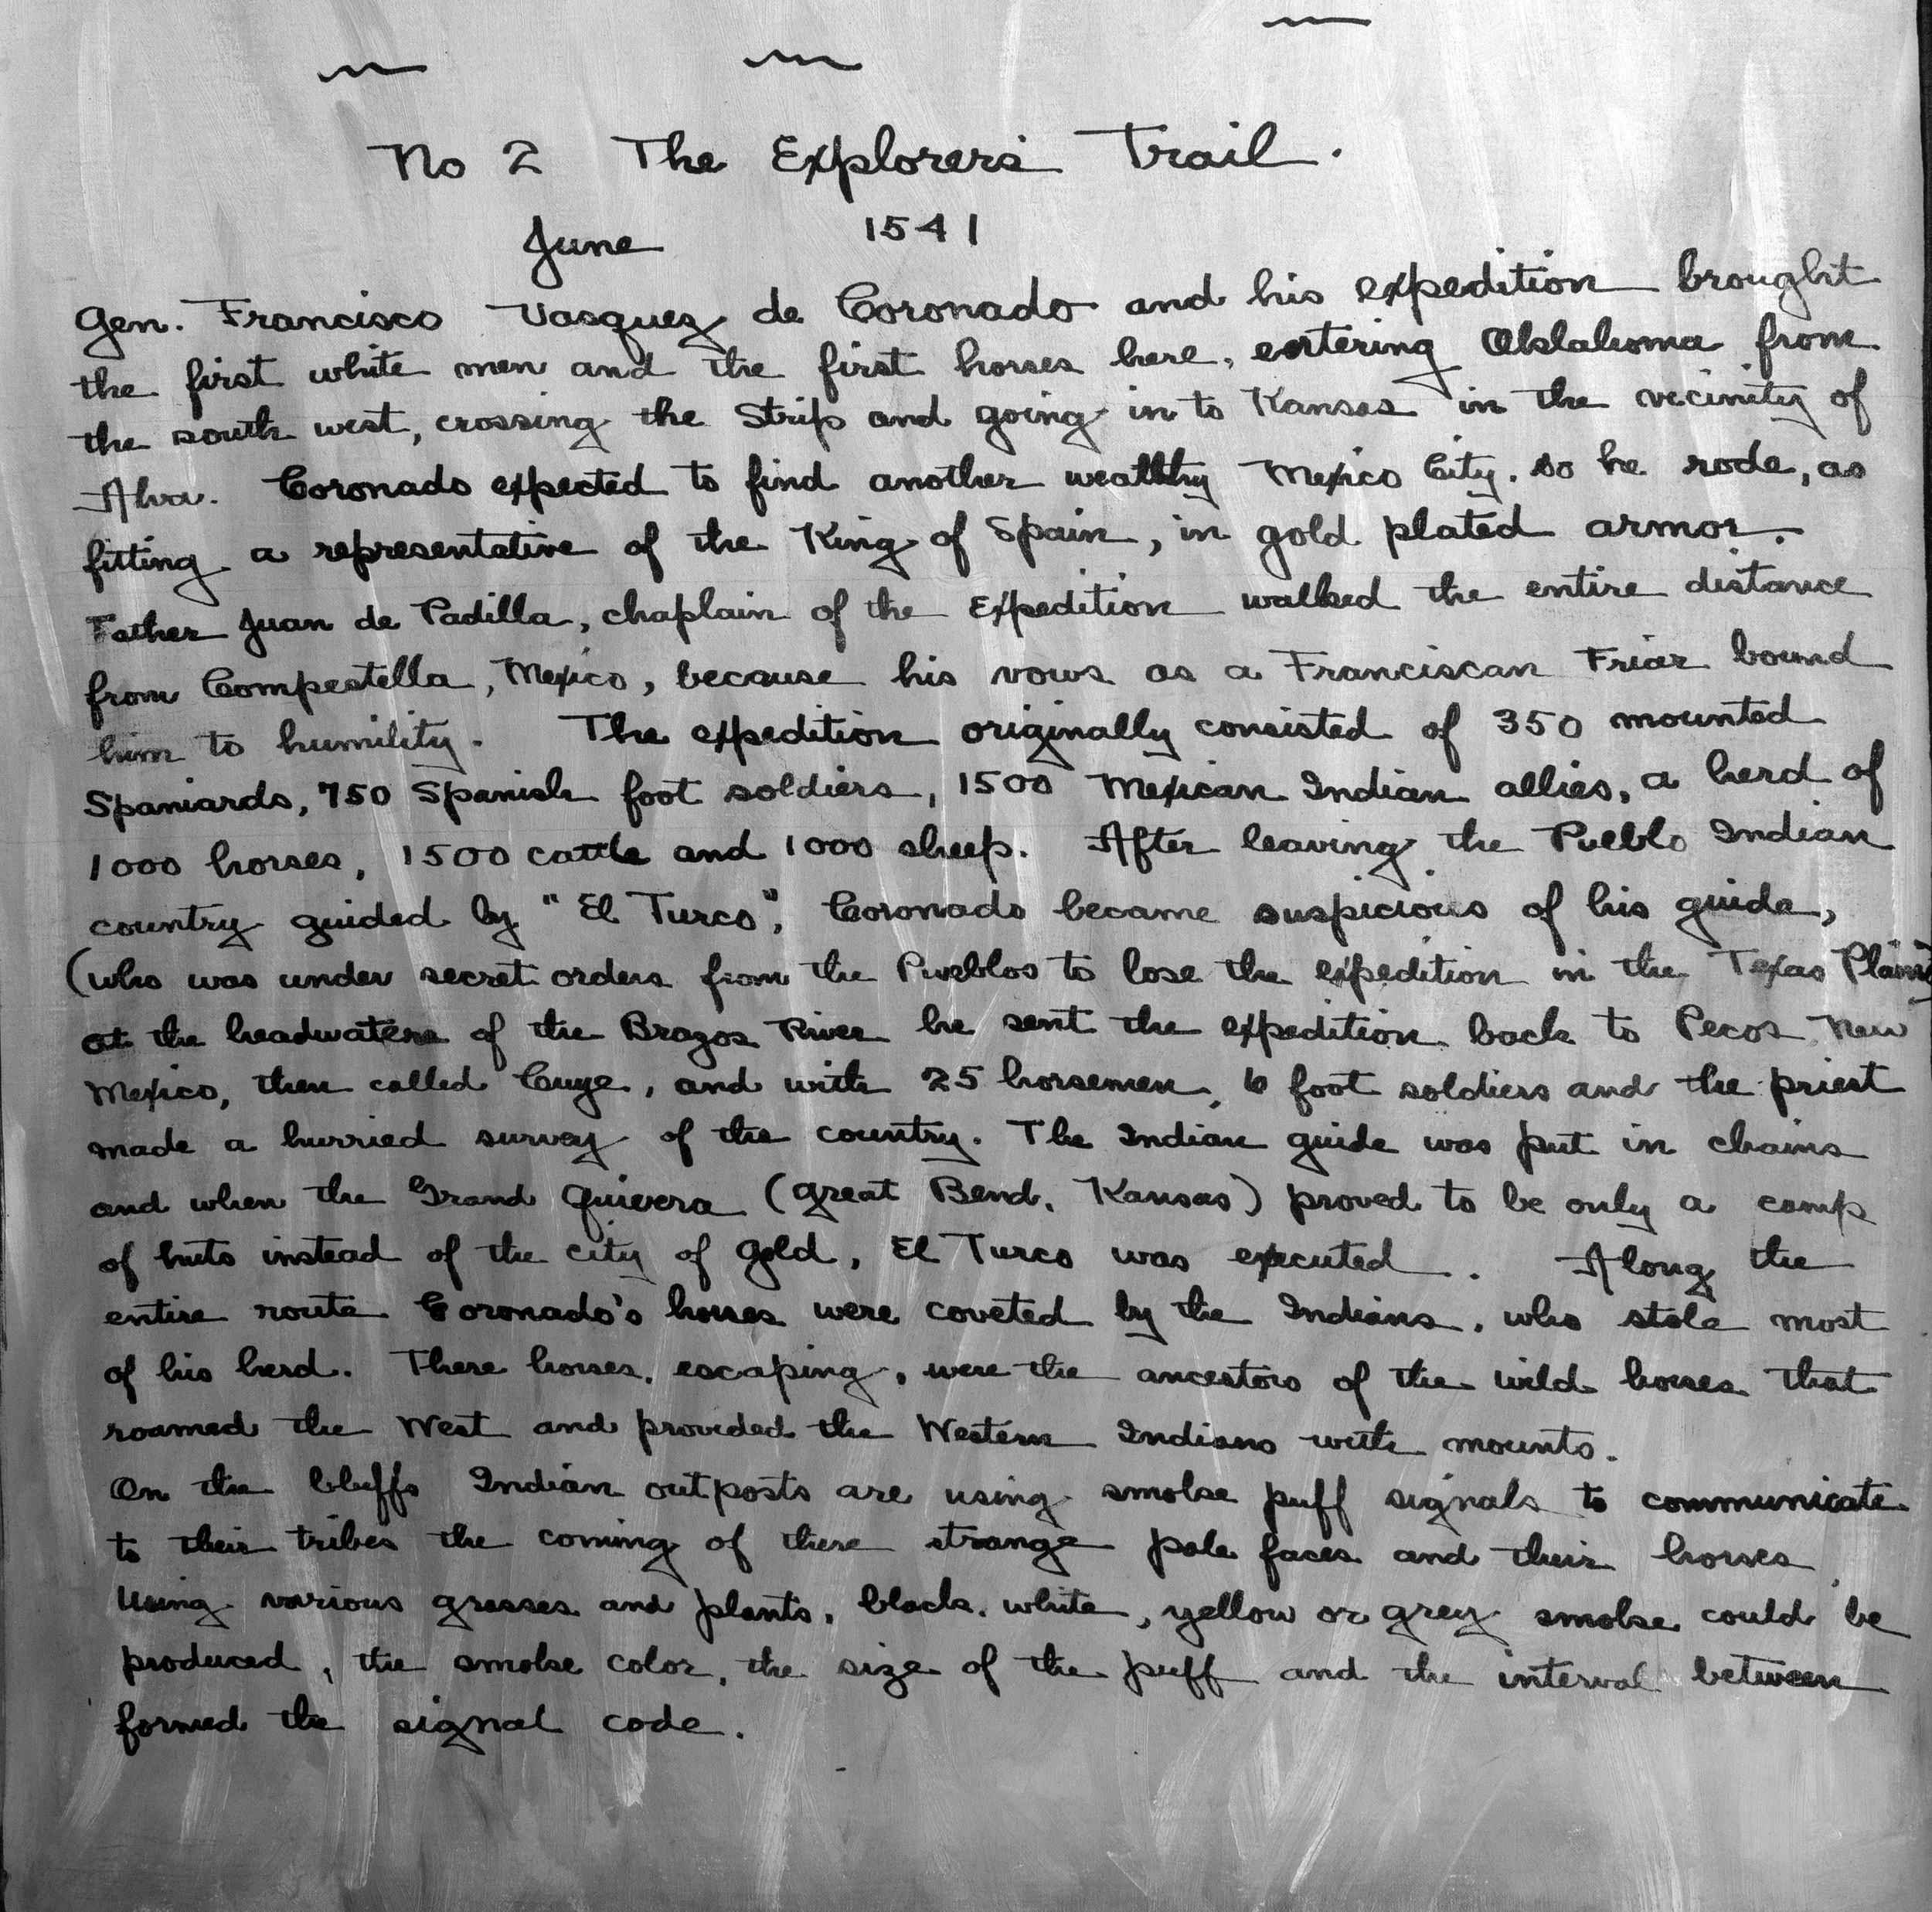 No 2 The Explorers Trail.
June 1541
Gen. Francisco Vasquez de Coronado and his expedition brought
the first white men and the first horses here, entering Oklahoma from
the south west, crossing the Strip and going in to Kansas in the vicinity of
Alva. Coronado expected to find another wealthy Mexico City. so he rode, as
fitting a representative of the King of Spain, in gold plated armor.
Father Juan de Padilla, chaplain of the Expedition walked the entire distance
from Compestella, Mexico, because his vows as a Franciscan Friar bound
him to humility. The expedition originally consisted of 350 mounted
Spaniards, 750 Spanish foot soldiers, 1500 Mexican Indian allies, a herd of
1000 horses, 1500 cattle and 1000 sheep. After leaving the Pueblo Indian
country guided by "El Turco", Coronado became suspicious of his guide,
(who was under secret orders from the Pueblos to lose the expedition in the Texas Plains)
at the headwaters of the Brazos River he sent the expedition back to Pecos, New
Mexico, then called Cuye, and with 25 horsemen, 6 foot soldiers and the priest
made a hurried survey of the country. The Indian guide was put in chains
and when the Grand Quivera (Great Bend, Kansas) proved to be only a camp
of huts instead of the city of gold, El Turco was executed. Along the
entire route Coronado's horses were coveted by the Indians, who stole most
of his herd. These horses, escaping, were the ancestors of the wild horses that
roamed the West and provided the Western Indians with mounts.
On the bluffs Indian outposts are using smoke puff signals to communicate
to their tribes the coming of these strange pale faces and their horses.
Using various grasses and plants, black, white, yellow or grey smoke could be
produced, the smoke color, the size of the puff and the interval between
formed the signal code.